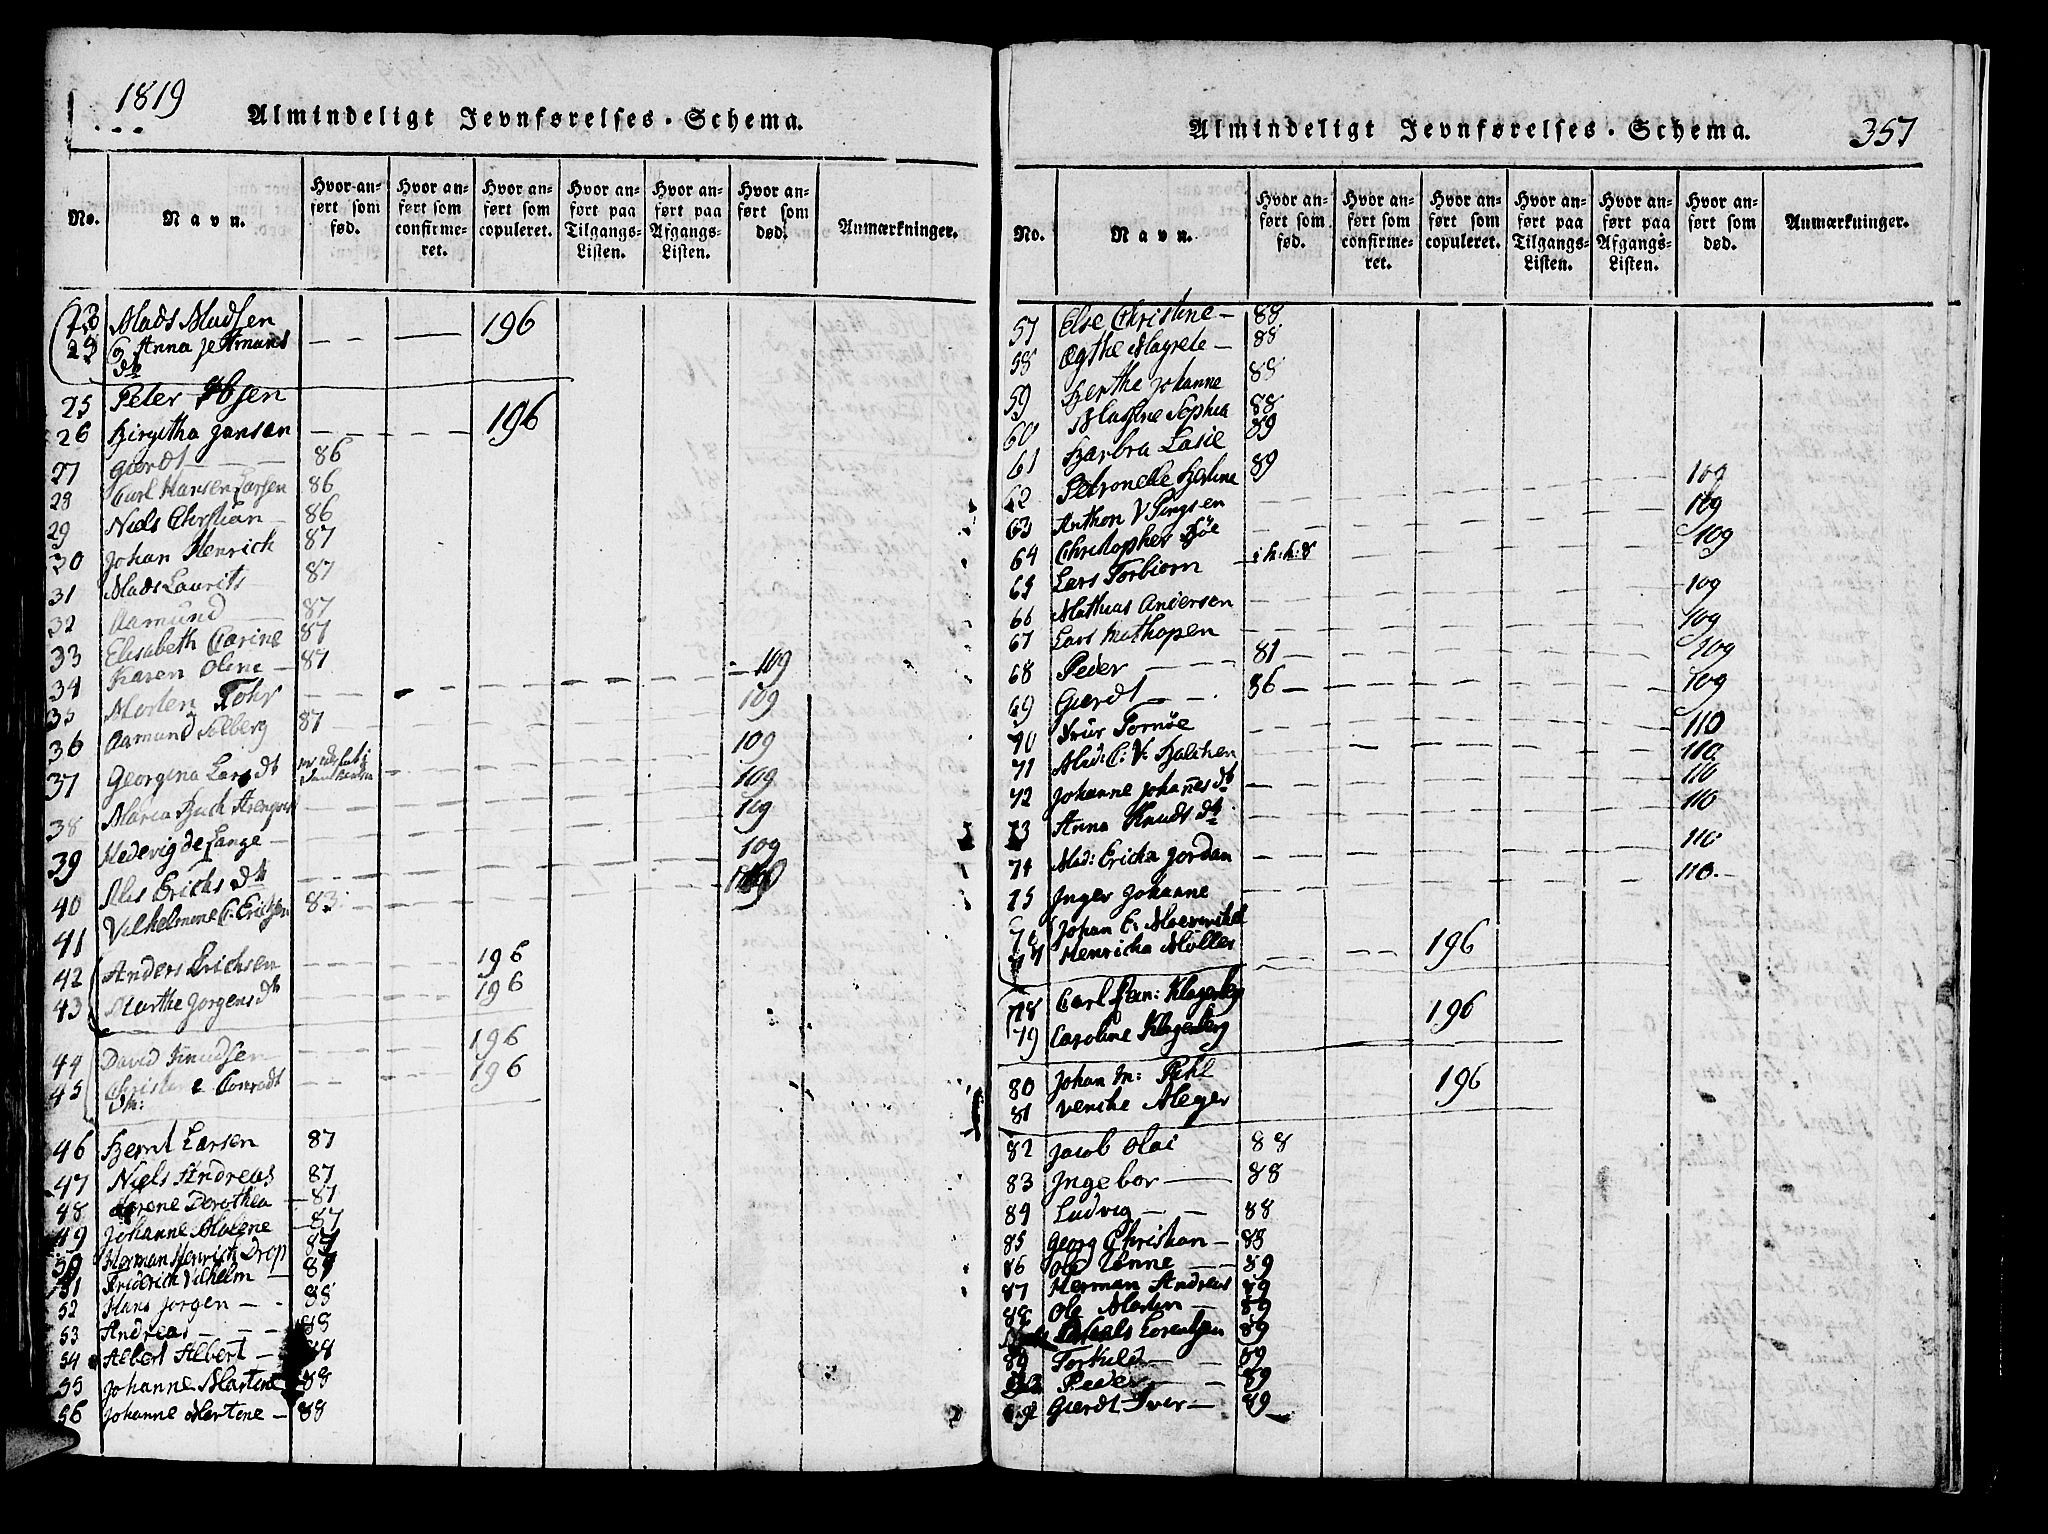 1819
Almindeligt Jevnførelses-Schema.
No.
Navn.
Hvor anført som fød.
Hvor anført som confirmeret.
Hvor anført som copuleret.
Hvor anført paa Tilgangs-Listen.
Hvor anført paa Afgangs-Listen.
Hvor anført som død.
Anmærkninger.
23 Mads Madsen 196
Anna
25 Peter
26 Birgitha Jansen 196
27 Gierdt 86
28 Carl Hansen Larsen 86
29 Niels Christian 86
30 Johan Henrich 87
31 Mads Laurits 87
32 Aamund 87
33 Elisabeth Carine 87
34 Karen Oline 87
35 Morten Fohr 109
36 Aamund Solberg 87 109
37 Georgina Lars dt 109
38 Maria Buch 109
39 Hedevig de Lange 109
40 Alis Erichs dtr 109
41 Vilhelmine C. Erichsen 83
42 Anders Erichsen 196
43 Marthe Jorgens dtr 196
44 David Knudsen 196
45 Conradt 196
46 Bernt Larsen 87
47 Niels Andreas 87
48 Dorothea 87
49 Johanne Malene 87
50 Herman Henrich Drop 87
51 Friderich Vilhelm 87
52 Hans Jorgen 88
53 Andreas 88
54 Albert Albert 88
55 Johanne Martine 88
56 Johanne Martene 88
Almindeligt Jevnførelses-Schema.
357
No.
Navn.
Hvor anført som fød.
Hvor anført som confirmeret.
Hvor anført som copuleret.
Hvor anført paa Tilgangs-Listen.
Hvor anført paa Afgangs-Listen.
Hvor anført som død.
Anmærkninger.
57 Else Christine 88
58 Ægthe Magrete 88
59 Berthe Johanne 88
60 Sophia 88
61 Barbra Lasie 89
62 Petronelle 89
63 Anthon 109
64 Christopher 109
65 Lars Torbiorn 109
66 Mathias Andersen 109
67 Lars 109
68 Peder 81 109
69 Gierdt 86 109
70 110
71 110
72 Johanne Johanes dt 110
73 Anna Knuds dtr 110
74 Mad: Ericka Jordan 110
75 Inger Johanne 110
76 Johan E.
77 Henricka Møller 196
78 Carl Klagenberg
79 Caroline Klagenberg 196
80 Johan M: Pihl
81 Venche Meyer 196
82 Jacob Olai 88
83 Ingebor 88
84 Ludvig 88
85 Georg Christian 88
86 Ole Tønne 89
87 Herman Andreas 89
88 Ole Martin 89
Lorentzen 89
89 Torkild 89
Peder 89
Gierdt Iver 89